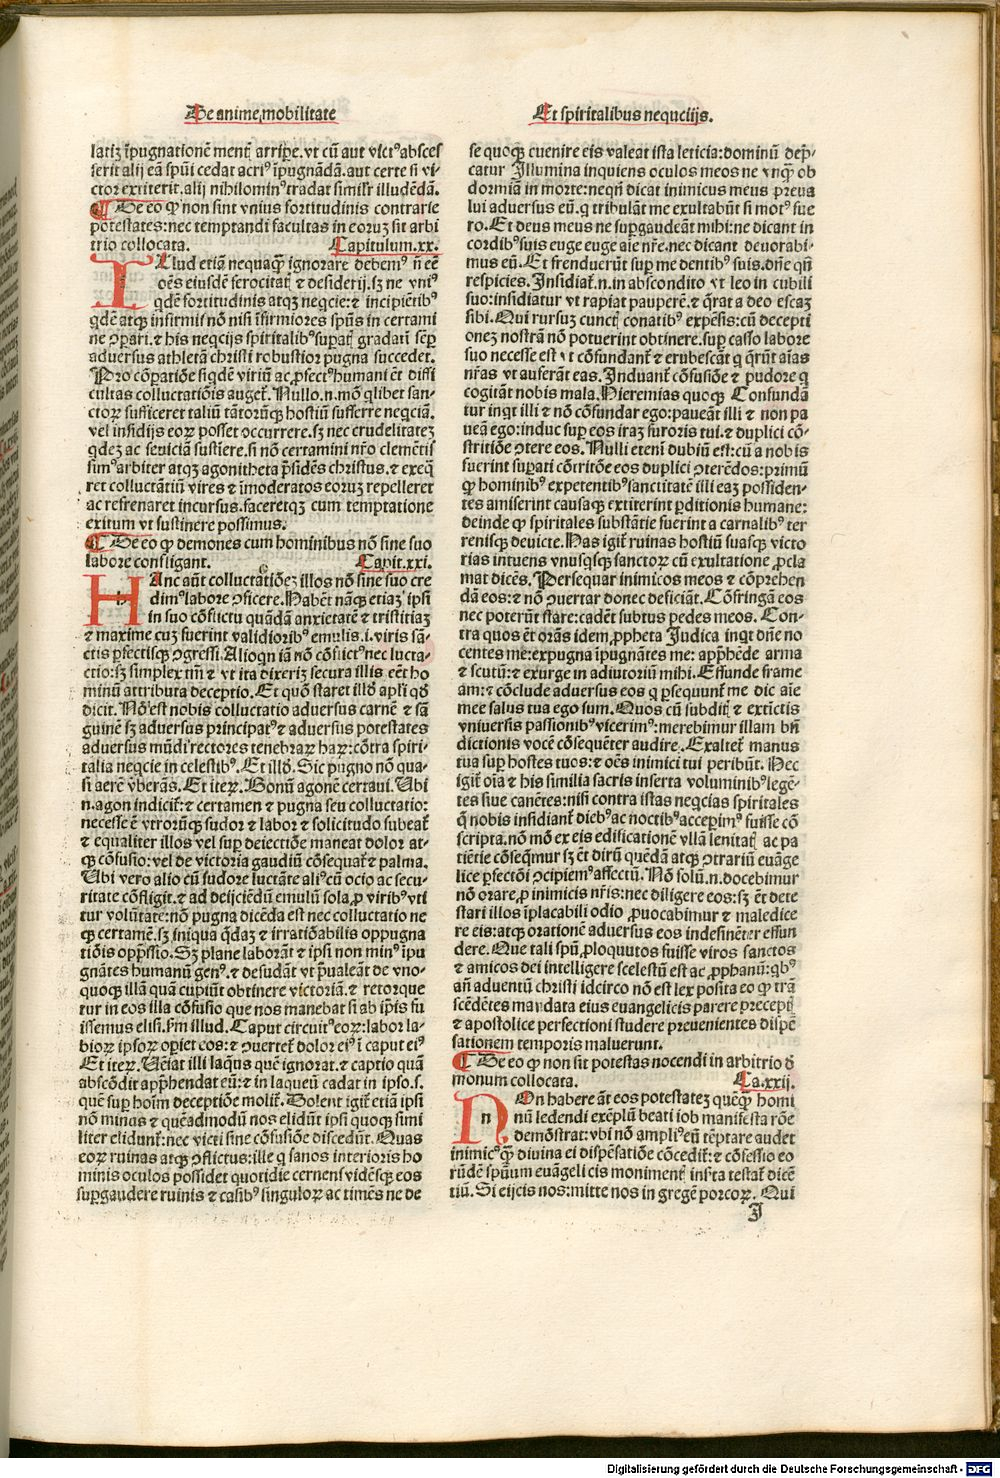 De anime mobilitate
Et spiritalibus nequciis.
latiz īpugnationē ment arripe.vt cū aut victꝰ absces
serit alij eā spūi cedat acriꝰ īpugnādā.aut certe si vi-
ctor extiterit.alij nihilominꝰ tradat similiť illudēdā.
De eo ꝙ non sint vnius fortitudinis contrarie
potestates:nec temptandi facultas in eoruz sit arbi
trio collocata. Capitulum.xx.
ILlud etiā nequaqꝫ ignorare debemꝰ ñ eē
oēs eiusdē ferocitať ⁊ desiderij.sꝫ ne vniꝰ
qdē fortitudinis atqꝫ neqcie:⁊ incipiētibꝰ
qdē atqꝫ infirmis nō nisi īfirmiores spūs in certami
ne ꝯpari.⁊ his neqcijs spiritalibꝰ supať gradatī semꝑ
aduersus athletā christi robustior pugna succedet.
Pro cōꝑatiōe siqdē viriū ac ꝓfectꝰ humani et̄ diffi
cultas colluctatiōis auget̄.Nullo.n.mō qlibet san-
ctoꝝ sufficeret taliū tātorūqꝫ hostiū sufferre neqciā.
vel insidijs eoꝝ posset occurrere.sꝫ nec crudelitatez
qdez ac seuiciā sustiere.si nō certamini nr̄o clemētis
simꝰ arbiter atqꝫ agonitheta p̄sidēs christus.⁊ exeq̄
ret colluctātiū vires ⁊ īmoderatos eoruz repelleret
ac refrenaret incursus.faceretqꝫ cum temptatione
exitum vt sustinere possimus.
De eo ꝙ demones cum hominibus nō sine suo
labore confligant. Capit.xxi.
HAnc aūt colluctatiōez illos nō sine suo cre
dimꝰ labore ꝯficere.Habēt nāqꝫ etiaz ipsi
in suo cōflictu quādā anxietatē ⁊ tristitiaz
⁊ maxime cuz fuerint validioribꝰ emulis.i.viris sā-
ctis ꝑfectisqꝫ ꝯgressi.Alioqn iā nō cōflictꝰ nec lucta-
ctio:sꝫ simplex tm̄ ⁊ vt ita dixeriz secura illis eēt ho
minū attributa deceptio.Et quō staret illd apľi qd
dicit.Nō est nobis colluctatio aduersus carnē ⁊ sā
guinē sꝫ aduersus principatꝰ ⁊ aduersus potestates
aduersus mūdi rectores tenebraꝝ haꝝ:cōtra spiri-
talia neqcie in celestibꝰ.Et illd.Sic pugno nō qua-
si aerē vberās.Et iteꝝ.Bonū agonē certaui.Ubi
n.agon indiciť:⁊ certamen ⁊ pugna seu colluctatio:
necesse ē vtrorūqꝫ sudor ⁊ labor ⁊ solicitudo subeať
⁊ equaliter illos vel suꝑ deiectiōe maneat dolor at-
qꝫ cōfusio:vel de victoria gaudiū cōsequať ⁊ palma.
Ubi vero alio cū sudore luctāte aliꝰ cū ocio ac secu-
ritate cōfligit.⁊ ad deijciēdū emulū sola ꝓ viribꝰ vti
tur volūtate:nō pugna dicēda est nec colluctatio ne
qꝫ certamē.sꝫ iniqua qdaz ⁊ irratiōabilis oppugna
tiōis opp̄ssio.Sꝫ plane laborāt ⁊ ipsi non minꝰ īpu
gnātes humanū genꝰ.⁊ desudāt vt p̄ualeāt de vno-
quoqꝫ illā quā cupiūt obtinere victoriā.⁊ retorque
tur in eos illa cōfusio que nos manebat si ab ip̄is fu
issemus elisi.ẜm illud.Caput circuitꝰ eoꝝ:labor la-
bioꝝ ipsoꝝ oꝑiet eos:⁊ ꝯuerteť dolor eiꝰ ī caput eiꝰ
Et iteꝝ.Ueīat illi laqūs quē ignorat.⁊ captio quā
abscōdit app̄hendat eū:⁊ in laqueū cadat in ipso.s.
quē suꝑ hoīm deceptiōe moliť.Dolent igiť etiā ipsi
nō minus ⁊ quēadmodū nos elidūt ipsi quoqꝫ simi
liter elidunť:nec victi sine cōfusiōe discedūt.Quas
eoꝝ ruinas atqꝫ ꝯflictus:ille q sanos interioris ho
minis oculos possidet quotidie cernens vidēsqꝫ eos
suꝑgaudere ruinis ⁊ casibꝰ singuloꝝ ac timēs ne de
se quoqꝫ euenire eis valeat ista leticia:dominū dep̄-
catur Illumina inquiens oculos meos ne vnqꝫ ob
dormiā in morte:neqñ dicat inimicus meus preua
lui aduersus eū.q tribulāt me exultabūt si motꝰ fue
ro.Et deus meus ne suꝑgaudeāt mihi:ne dicant in
cordibꝰ suis euge euge aie nr̄e.nec dicant deuorabi-
mus eū.Et frenduerūt suꝑ me dentibꝰ suis.dn̄e qn̄
respicies.Insidiať.n.in abscondito vt leo in cubili
suo:insidiatur vt rapiat pauperē.⁊ q̄rat a deo escaz
sibi.Qui rursuz cuncť conatibꝰ expēsis:cū decepti
onez nostrā nō potuerint obtinere.suꝑ casso labore
suo necesse est vt cōfundanť ⁊ erubescāt q q̄rūt aīas
nr̄as vt auferāt eas.Induanť cōfusiōe ⁊ pudore q
cogitāt nobis mala.Hieremias quoqꝫ Confundā
tur inqt illi ⁊ nō cōfundar ego:paueāt illi ⁊ non pa
ueā ego:induc suꝑ eos iraz furoris tui.⁊ duplici cō-
stritiōe ꝯtere eos.Nulli eteni dubiū est:cū a nobis
fuerint suꝑati cōtritōe eos duplici ꝯterēdos:primū
ꝙ hominibꝰ expetentibꝰ sanctitatē illi eaz possiden-
tes amiserint causaqꝫ extiterint ꝑditionis humane:
deinde ꝙ spiritales substātie fuerint a carnalibꝰ ter
renisqꝫ deuicte.Has igiť ruinas hostiū suasqꝫ victo
rias intuens vnusqsqꝫ sanctoꝝ cū exultatione ꝓcla
mat dicēs.Persequar inimicos meos ⁊ cōprehen
dā eos:⁊ nō ꝯuertar donec deficiāt.Cōfringā eos
nec poterūt stare:cadēt subtus pedes meos.Con-
tra quos et̄ orās idem ꝓpheta Iudica inqt dn̄e no
centes me:expugna īpugnātes me: app̄hēde arma
⁊ scutū:⁊ exurge in adiutoriū mihi.Effunde frame
am:⁊ cōclude aduersus eos q ꝑsequunť me dic aīe
mee salus tua ego sum.Quos cū subditꝭ ⁊ extictis
vniuersis passionibꝰ vicerimꝰ:merebimur illam bn̄
dictionis vocē cōsequēter audire.Exalteť manus
tua suꝑ hostes tuos:⁊ oēs inimici tui peribūt.Hec
igiť oīa ⁊ his similia sacris inserta voluminibꝰ legē-
tes siue canētes:nisi contra istas neqcias spiritales
q̄ nobis insidianť diebꝰ ac noctibꝰ acceperimꝰ fuisse cō
scripta.nō mō ex eis edificationē vllā lenitať ac pa
tiētie cōseqmur sꝫ et̄ dirū quēdā atqꝫ ꝯtrariū euāge
lice ꝑfectōi ꝯcipiemꝰ affectū.Nō solū.n.docebimur
nō orare ꝓ inimicis nr̄is:nec diligere eos:sꝫ et̄ dete
stari illos īplacabili odio ꝓuocabimur ⁊ maledice
re eis:atqꝫ orationē aduersus eos indesinēter effun
dere.Que tali spū ꝓloquutos fuisse viros sanctos
⁊ amicos dei intelligere scelestū est ac ꝓphanū:qbꝰ
an̄ aduentū christi idcirco nō est lex posita eo ꝙ trā
scēdētes mandata eius euangelicis parere preceptꝭ
⁊ apostolice perfectioni studere preuenientes dispē
sationem temporis maluerunt.
De eo ꝙ non sit potestas nocendi in arbitrio de
monum collocata. Ca.xxij.
NOn habere āt eos potestatez quēqꝫ homi
nū ledendi exēplū beati iob manifesta rōe
demōstrat:vbi nō ampliꝰ eū tēptare audet
inimicꝰ qꝫ diuina ei dispēsatiōe cōcediť:⁊ cōfessio eo
rūdē spūum euāgelicis monimentꝭ inserta testať dicē
tiū.Si eijcis nos:mitte nos in gregē porcoꝝ.Qui
I
Digitalisierung gefördert durch die Deutsche Forschungsgemeinschaft - DFG